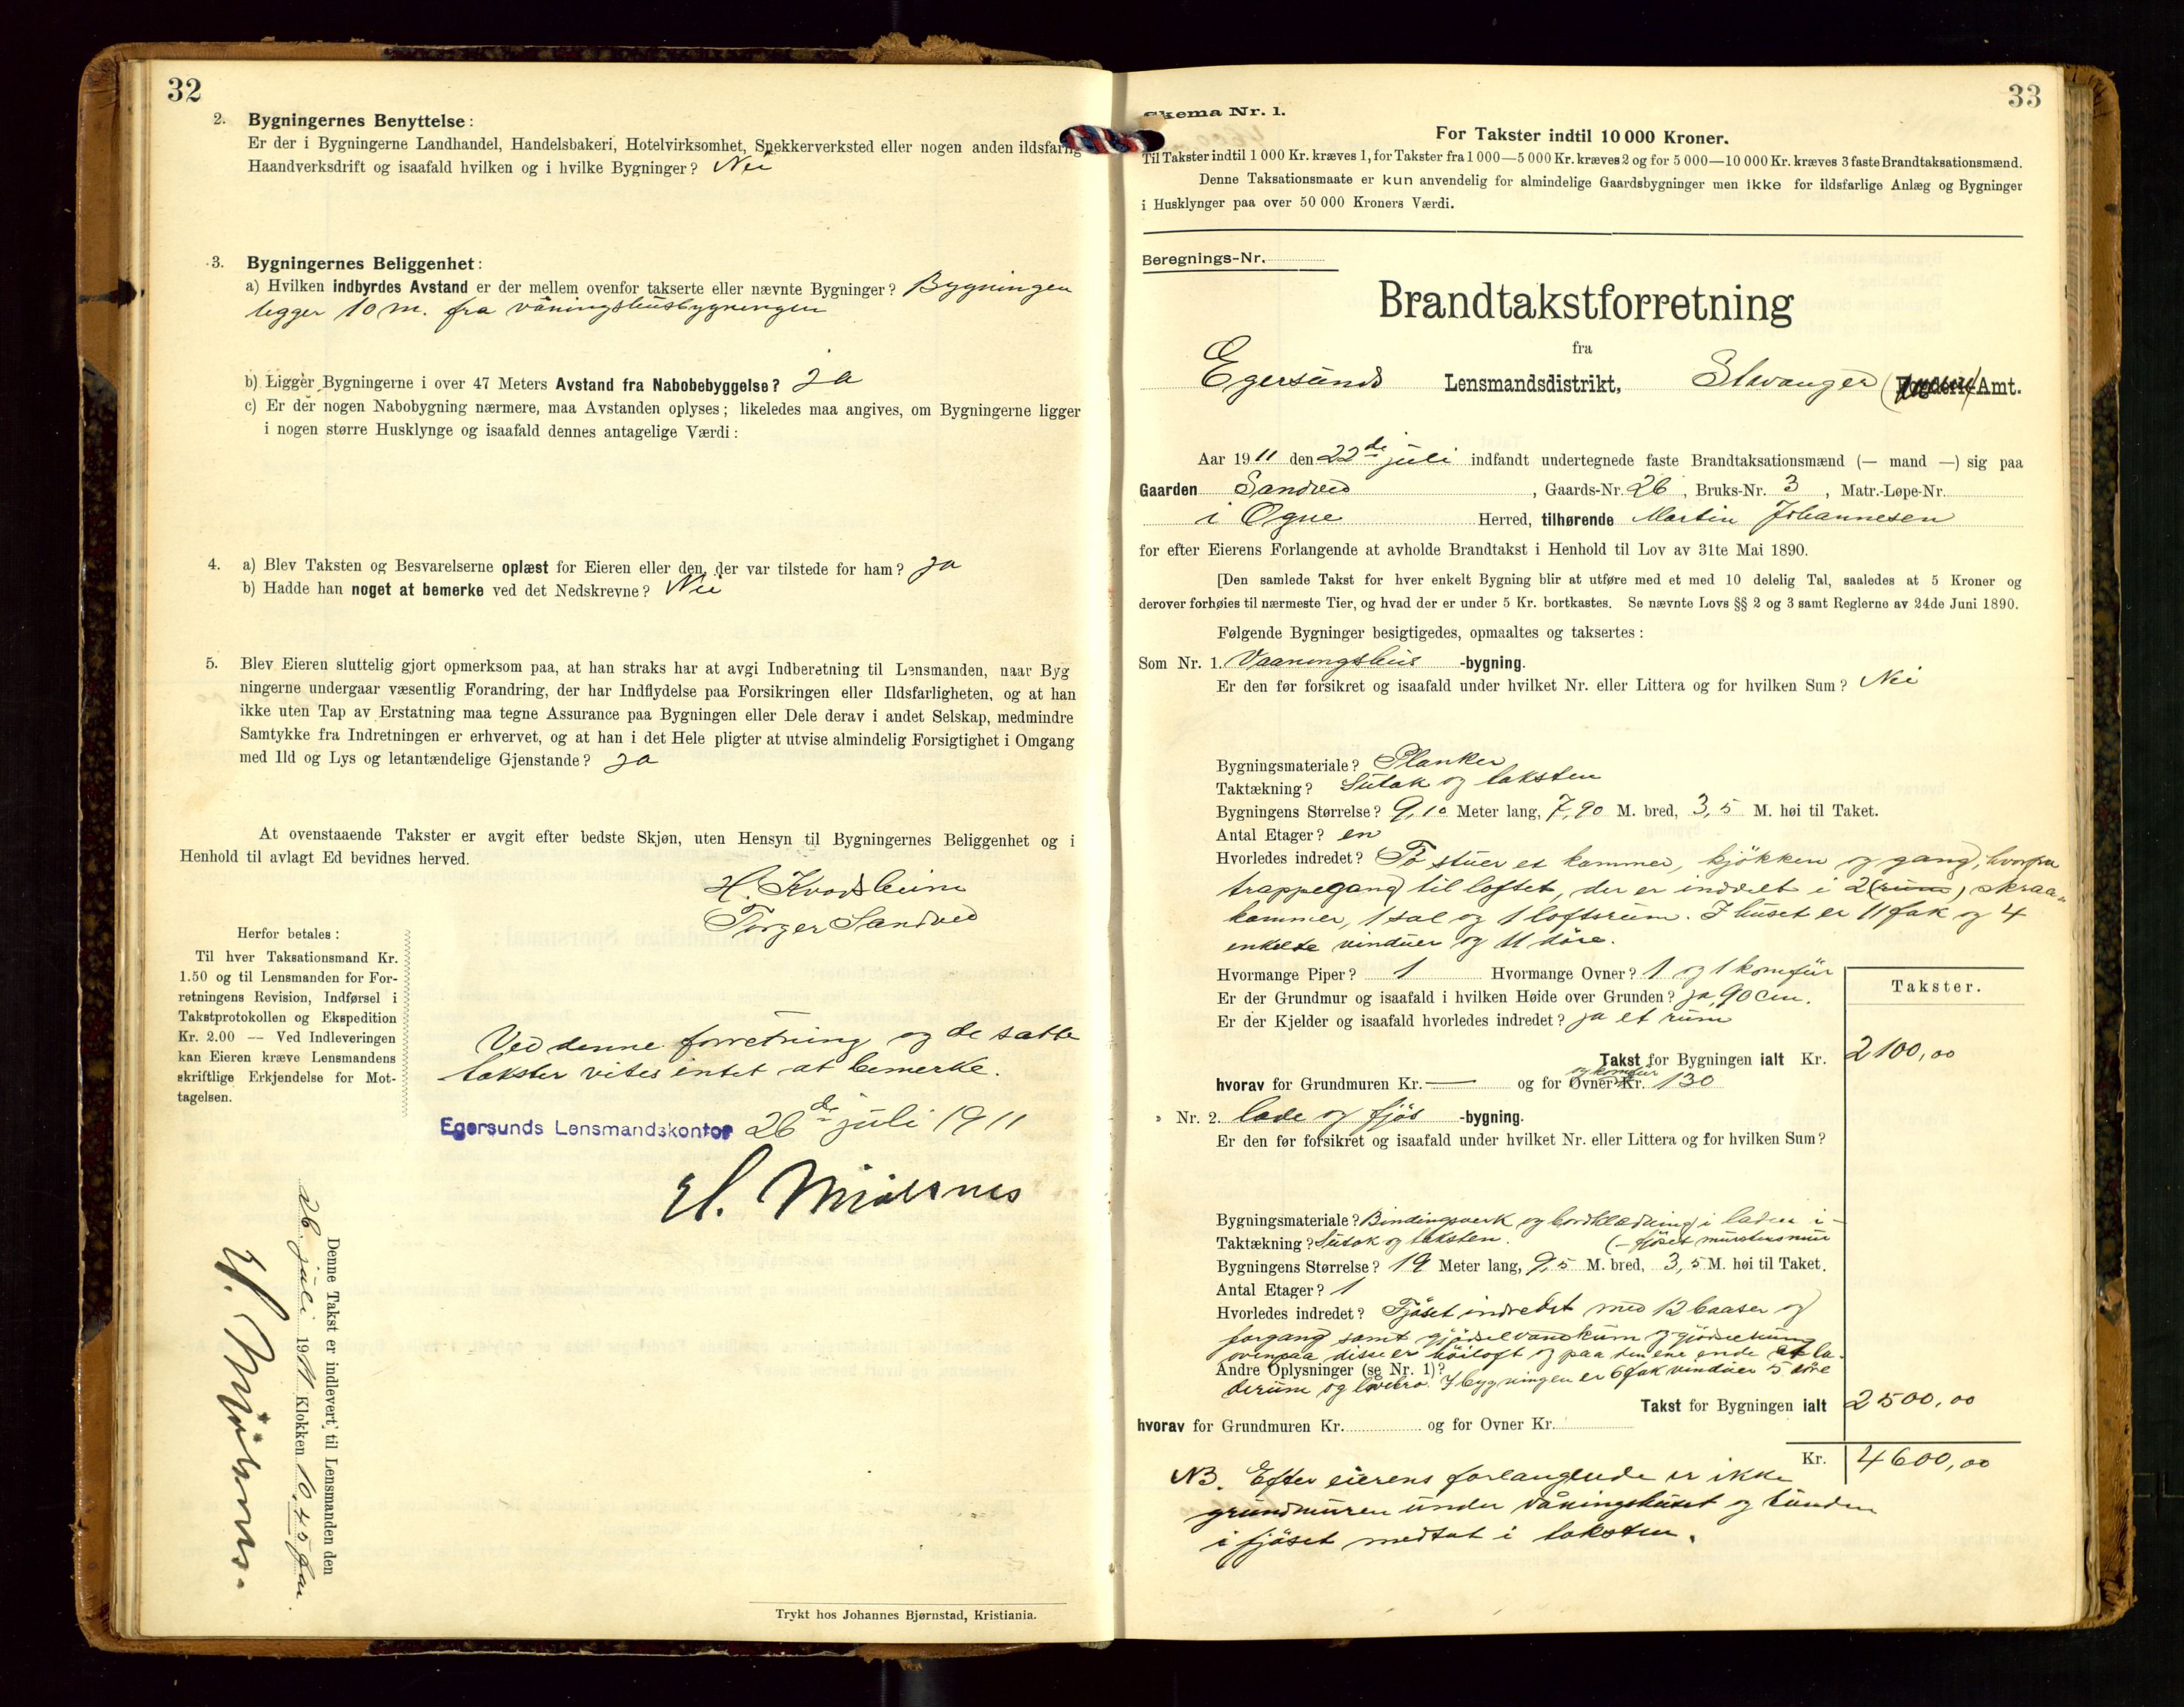 32
2. Bygningernes Benyttelse:
Er der i Bygningerne Landhandel, Handelsbakeri, Hotelvirksomhet, Snekkerverksted eller nogen anden ildsfarlig
Haandverksdrift og isaafald hvilken og i hvilke Bygninger? Nei
3. Bygningernes Beliggenhet:
a) Hvilken indbyrdes Avstand er der mellem ovenfor takserte eller nævnte Bygninger? Bygningen
ligger 10 m. fra våningshusbygningen
b) Ligger Bygningerne i over 47 Meters Avstand fra Nabobebyggelse? Ja
c) Er der nogen Nabobygning nærmere, maa Avstanden oplyses; likeledes maa angives, om Bygningerne ligger
i nogen større Husklynge og isaafald dennes antagelige Værdi:
4. a) Blev Taksten og Besvarelserne oplæst for Eieren eller den, der var tilstede for ham? Ja
b) Hadde han noget at bemerke ved det Nedskrevne? Nei
5. Blev Eieren sluttelig gjort opmerksom paa, at han straks har at avgi Indberetning til Lensmanden, naar Byg
ningerne undergaar væsentlig Forandring, der har Indflydelse paa Forsikringen eller Ildsfarligheten, og at han
ikke uten Tap av Erstatning maa tegne Assurance paa Bygningen eller Dele derav i andet Selskap, medmindre
Samtykke fra Indretningen er erhvervet, og at han i det Hele pligter at utvise almindelig Forsigtighet i Omgang
med Ild og Lys og letantændelige Gjenstande? Ja
At ovenstaaende Takster er avgit efter bedste Skjøn, uten Hensyn til Bygningernes Beliggenhet og i
Henhold til avlagt Ed bevidnes herved.
H. Kvodsheim
Torger Sandved
Herfor betales:
Til hver Taksationsmand Kr.
1.50 og til Lensmanden for For-
retningens Revision, Indførsel i
Takstprotokollen og Ekspedition
Kr. 2.00 — Ved Indleveringen
kan Eieren kræve Lensmandens
skriftlige Erkjendelse for Mot-
tagelsen.
Ved denne forretning og de satte
takster vites intet at bemerke.
Egersunds Lensmandskontor 26de juli 1911
Denne Takst er indlevert til Lensmanden den
26. juli 1911 Klokken 10.45 fm.
Trykt hos Johannes Bjørnstad, Kristiania.
33
Skema Nr. 1.
For Takster indtil 10 000 Kroner.
Til Takster indtil 1 000 Kr. kræves 1, for Takster fra 1 000—5 000 Kr. kræves 2 og for 5 000—10 000 Kr. kræves 3 faste Brandtaksationsmænd.
Denne Taksationsmaate er kun anvendelig for almindelige Gaardsbygninger men ikke for ildsfarlige Anlæg og Bygninger
i Husklynger paa over 50 000 Kroners Værdi.
Beregnings-Nr.
Brandtakstforretning
fra
Egersunds Lensmandsdistrikt, Stavanger Amt.
Aar 1911 den 22de juli indfandt undertegnede faste Brandtaksationsmænd (— mand —) sig paa
Gaarden Sandved, Gaards-Nr. 26, Bruks-Nr. 3, Matr.-Løpe-Nr.
i Ogne Herred, tilhørende Martin Johannesen
for efter Eierens Forlangende at avholde Brandtakst i Henhold til Lov av 31te Mai 1890.
[Den samlede Takst for hver enkelt Bygning blir at utføre med et med 10 delelig Tal, saaledes at 5 Kroner og
derover forhøies til nærmeste Tier, og hvad der er under 5 Kr. bortkastes. Se nævnte Lovs §§ 2 og 3 samt Reglerne av 24de Juni 1890.
Følgende Bygninger besigtigedes, opmaaltes og taksertes:
Som Nr. 1. Vaaningshus -bygning.
Er den før forsikret og isaafald under hvilket Nr. eller Littera og for hvilken Sum? Nei
Bygningsmateriale? Planker
Taktækning? Sutak og taksten
Bygningens Størrelse? 9,10 Meter lang, 7,90 M. bred, 3,5 M. høi til Taket.
Antal Etager? en
Hvorledes indredet? To stuer et kammer, kjøkken og gang, hvorfra
trappegang til loftet, der er inddelt i 2 (rum) skraa-
kammer, 1 sal og 1 loftsrum. I huset er 11 fak og 4
enkelte vinduer og 11 døre.
Hvormange Piper? 1 Hvormange Ovner? 1 og 1 komfur
Er der Grundmur og isaafald i hvilken Høide over Grunden? ja, 90 cm.
Er der Kjelder og isaafald hvorledes indredet? ja et rum
Takster.
Takst for Bygningen ialt Kr. 2100,00
hvorav for Grundmuren Kr. — og for Ovner og komfur Kr. 130
Nr. 2. lade og fjøs -bygning.
Er den før forsikret og isaafald under hvilket Nr. eller Littera og for hvilken Sum?
Bygningsmateriale? Bindingsverk og bordklædning i laden i-
Taktækning? Sutak og taksten. (- fjøset murstensmur
Bygningens Størrelse? 19 Meter lang, 9,5 M. bred, 3,5 M. høi til Taket.
Antal Etager? 1
Hvorledes indredet? Fjøset indredet med 12 baaser og
forgang samt gjødselvandkum og gjødselkum
ovenpaa disse er høiloft og paa den ene ende et la-
Andre Oplysninger (se Nr. 1)?
derum og låvebro. I bygningen er 6 fak vinduer 5 døre
Takst for Bygningen ialt 2500,00
hvorav for Grundmuren Kr. og for Ovner Kr.
Kr. 4600,00
NB. Efter eierens forlangende er ikke
grundmuren under våningshuset og
i fjøset medtat i taksten.